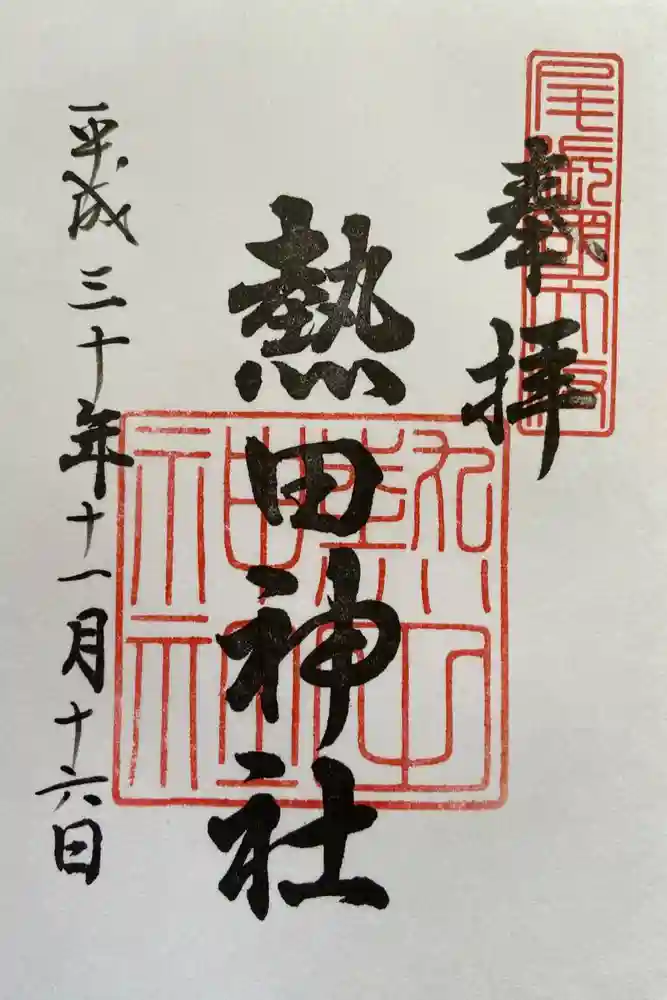 奉拝
熱田神社
平成三十年十一月十六日